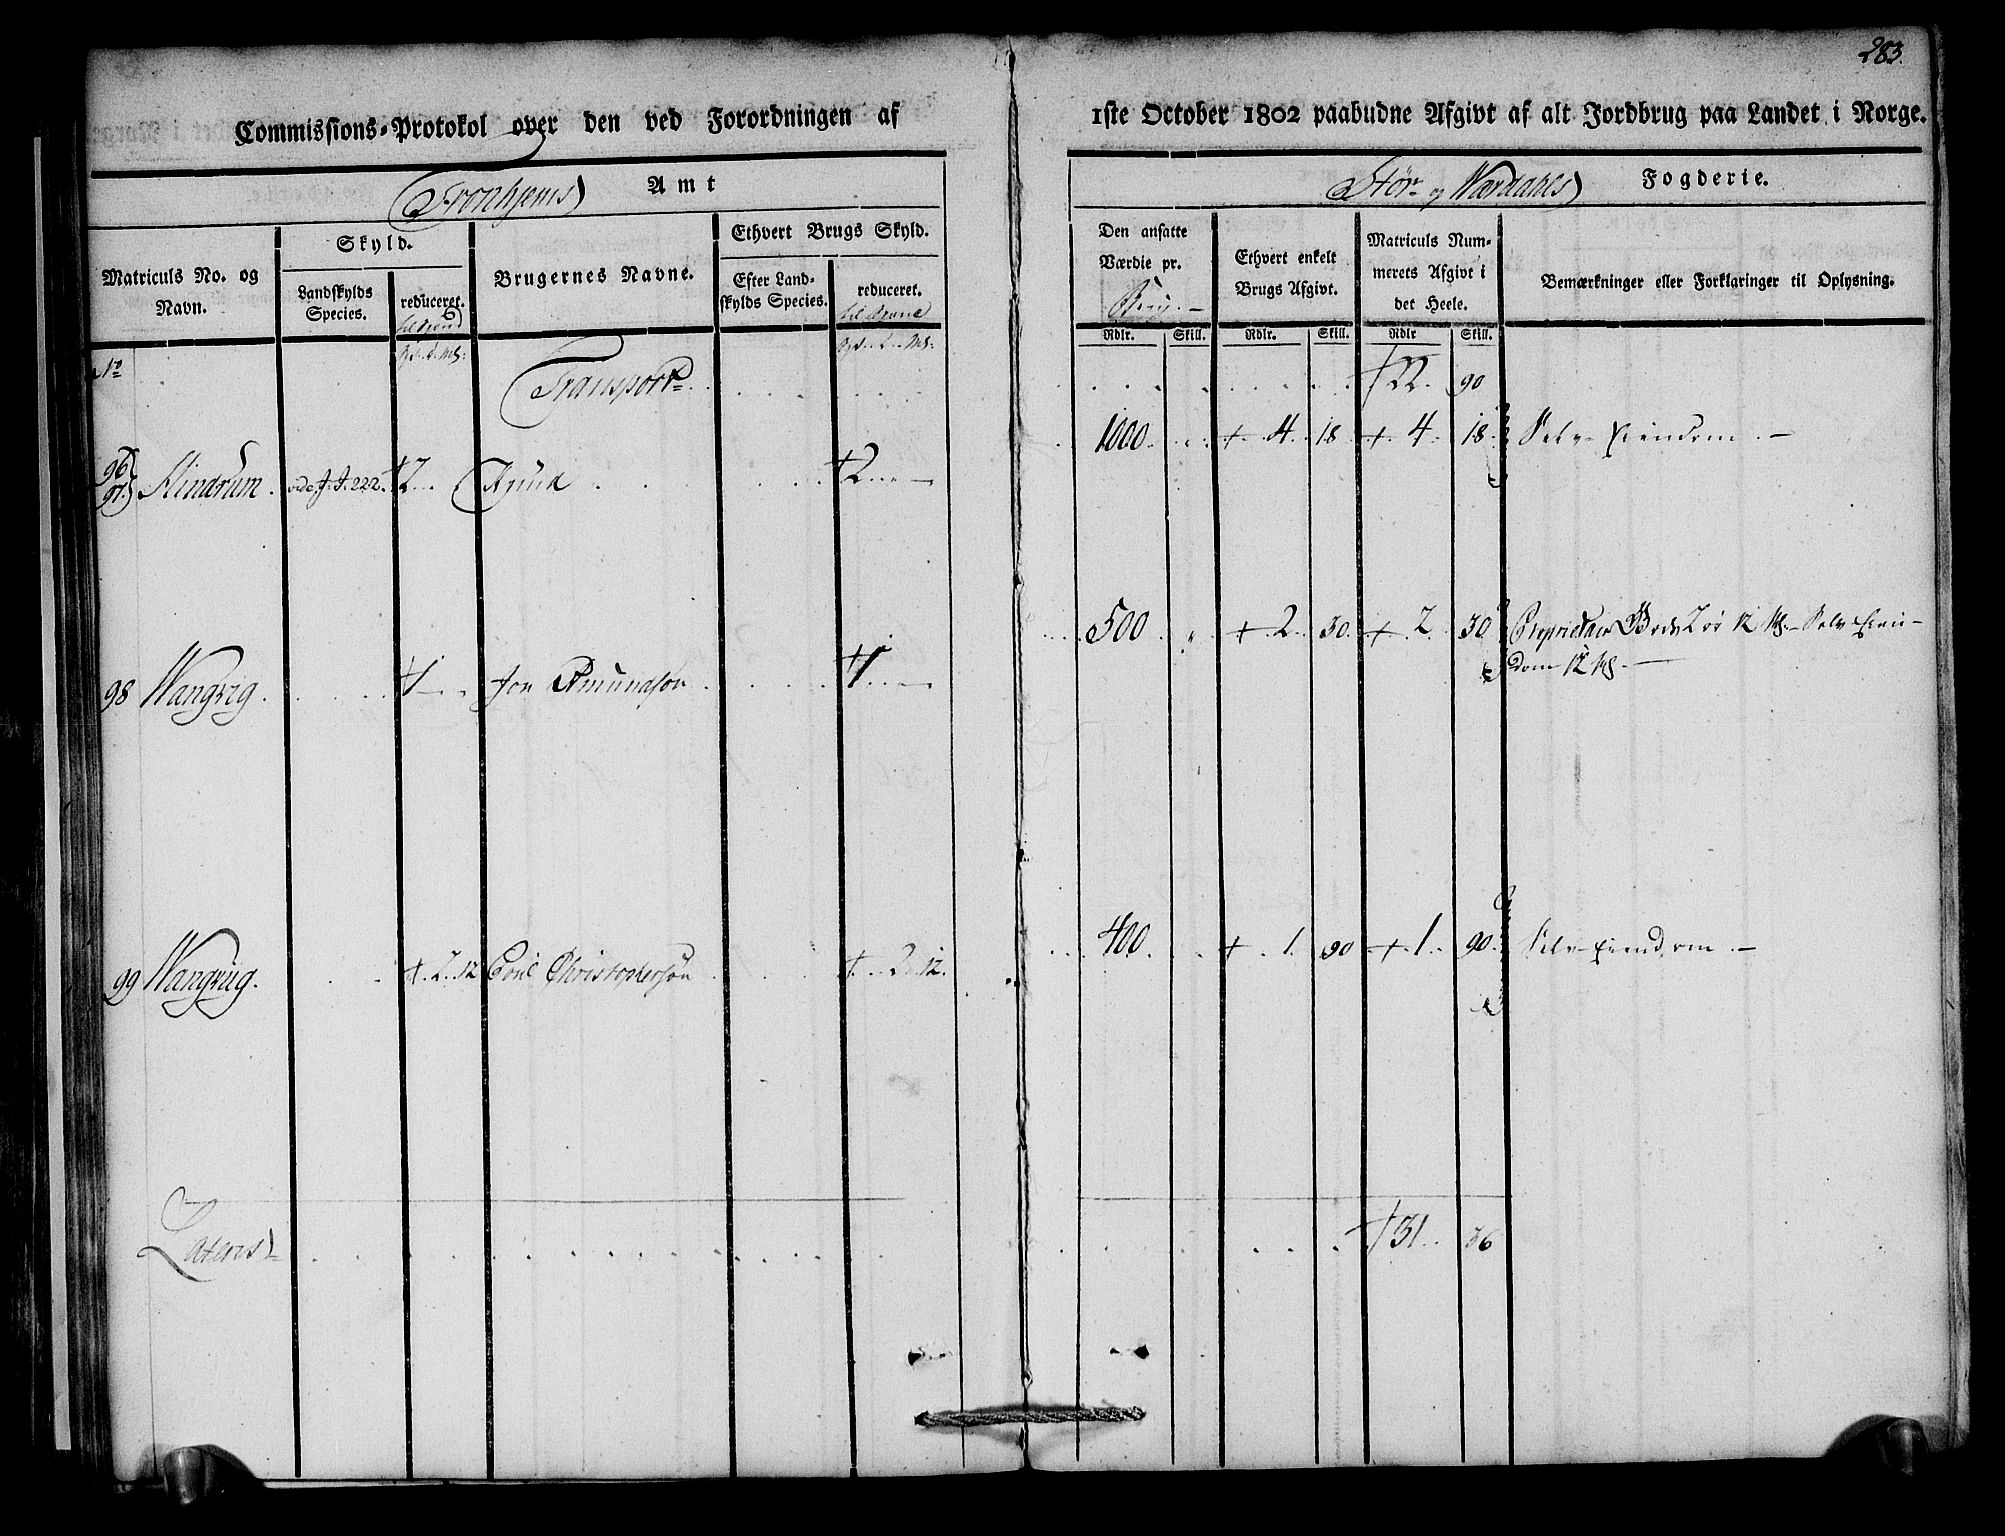 283.
Commissions-Protokol over den ved Forordningen af 1ste October 1802 paabudne Afgivt af alt Jordbrug paa Landet i Norge.
Tronhjems Amt
Stør og Værdahls Fogderie.
Matriculs No. og Navn.
Skyld.
Landskylds Species.
reduceret.
Brugernes Navne.
Ethvert Brugs Skyld.
Efter Landskylds Species.
reduceret.
Den ansatte Værdie pr. Brug.
Ethvert enkelt Brugs Afgivt.
Matriculs Nummerets Afgivt i det Heele.
Bemærkninger eller Forklaringer til Oplysning.
Rdlr. Skill. Rdlr. Skill. Rdlr Skill.
Transport 22. 90
96 97 Mindrum . 222. 2 2 1000. 4. 18 4. 18. Selv Eiendom . –
98 Wangvig . 1 Jon Amundsøn 1 500 2. 30. 2. 30 Proprietair 12 – Selv Eien-
dom 12 –
99 Wangvig . 2. 12 Christophersøn 2. 12. 400. 1. 90 1. 90. Selv Eiendom . –
Lateris 31. 36